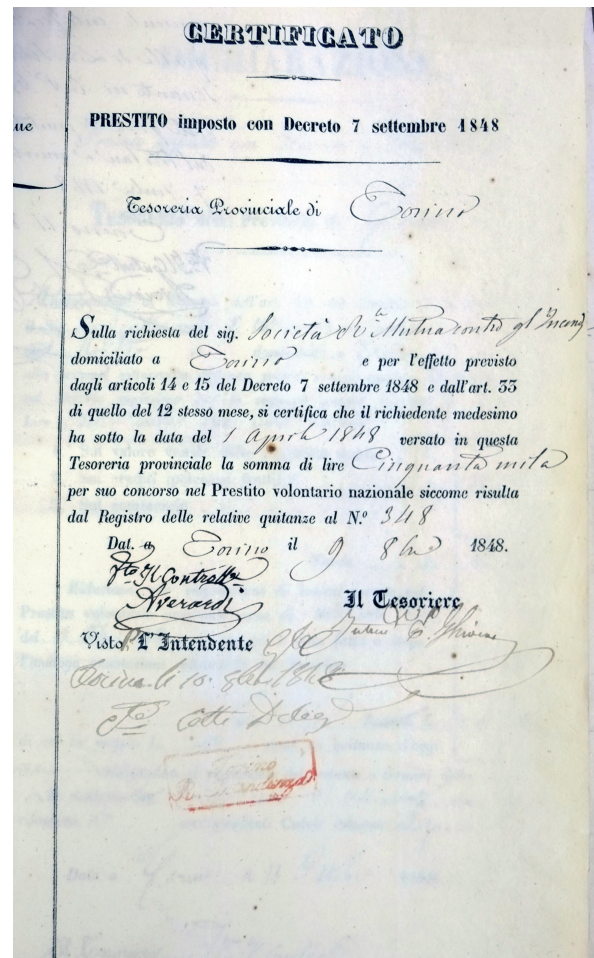 CERTIFICATO
ue
PRESTITO imposto con Decreto 7 settembre 1848
Tesoreria Provinciale di Torino
Sulla richiesta del sig. Società Mutua contro gl'Incendj
domiciliato a Torino e per l'effetto previsto
dagli articoli 14 e 15 del Decreto 7 settembre 1848 e dall'art. 33
di quello del 12 stesso mese, si certifica che il richiedente medesimo
ha sotto la data del 1 Aprile 1848 versato in questa
Tesoreria provinciale la somma di lire Cinquanta mila
per suo concorso nel Prestito volontario nazionale siccome risulta
dal Registro delle relative quitanze al N.º 348
Dat. a Torino il 9 8bre 1848.
Il Controllre
Averardi
Il Tesoriere
Visto L'Intendente
Torino li 10 1848
Cotti
Torino